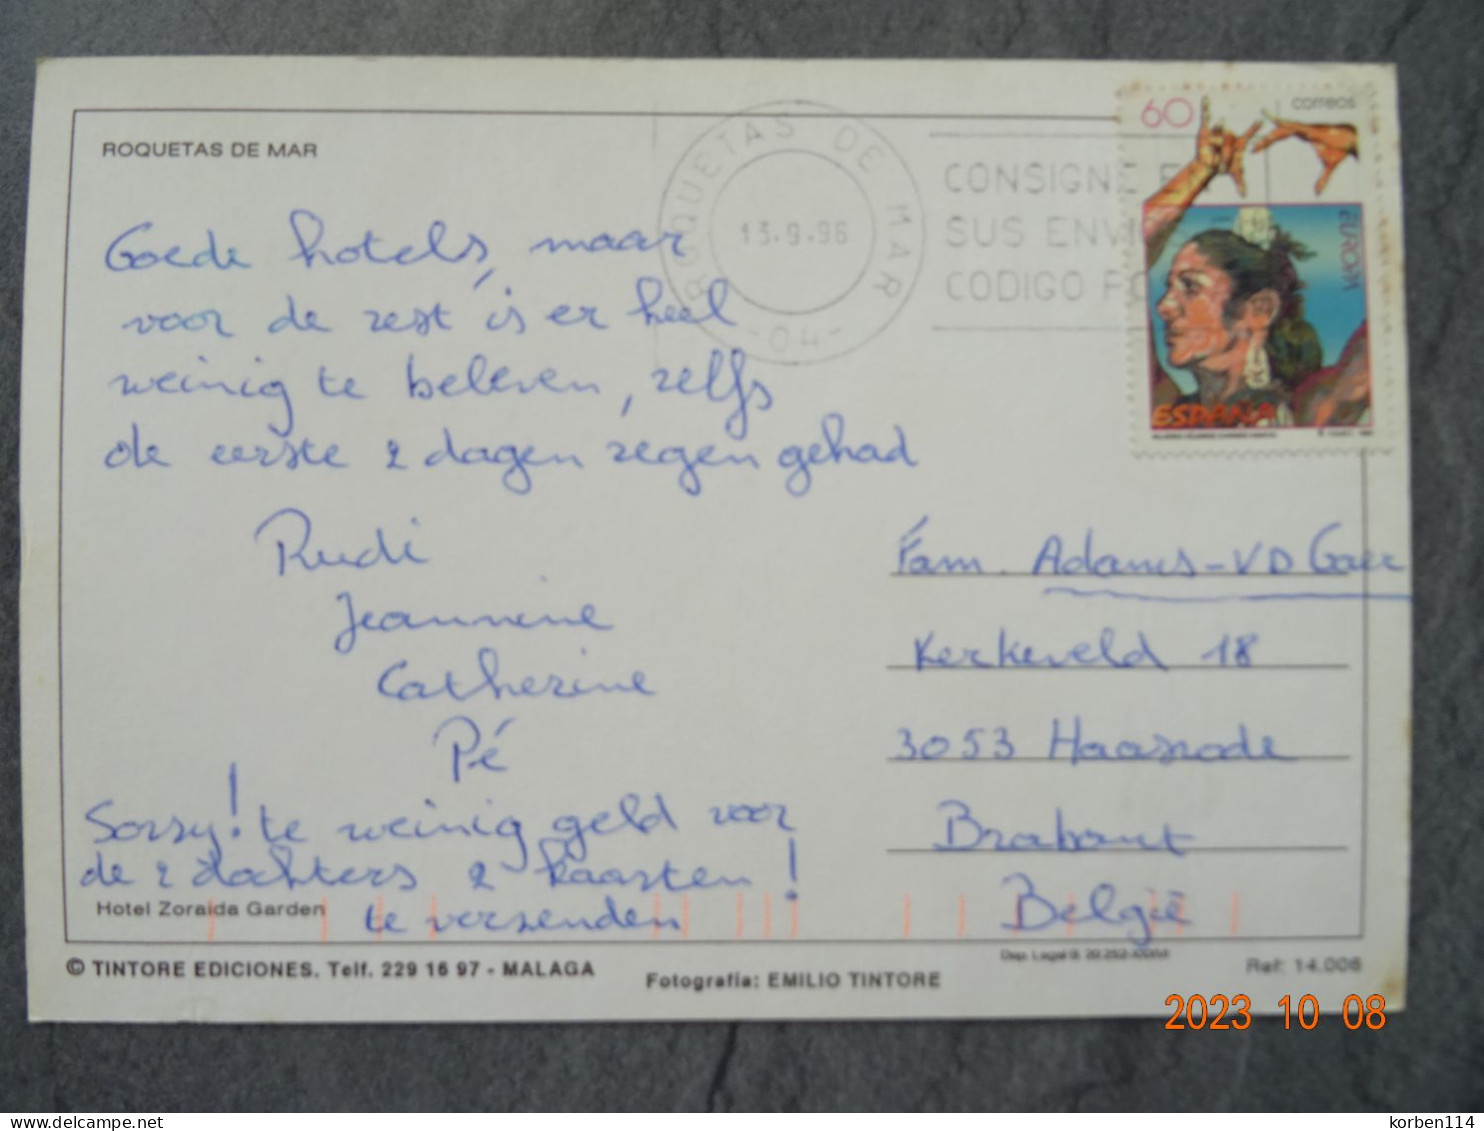 ROQUETAS DE MAR
Goede hotels, maar
voor de rest is er heel
weinig te beleven, zelfs
de eerste 2 dagen regen gehad
Rudi
Jeannine
Catherine
Pé
Sorry! te weinig geld voor
de 2 dochters 2 kaarten!
te verzenden
Hotel Zoraida Garden
© TINTORE EDICIONES. Telf. 229 16 97 - MALAGA
Fotografia: EMILIO TINTORE
ROQUETAS DE MAR
13-9-96
-04-
CONSIGNE E
SUS ENV
CODIGO PO
60
correos
EUROPA
ESPAÑA
Fam. Adams-VD Gaer
Kerkeveld 18
3053 Haasrode
Brabant
België
Dep. Legal B.
Ref: 14.006
2023 10 08
korben114